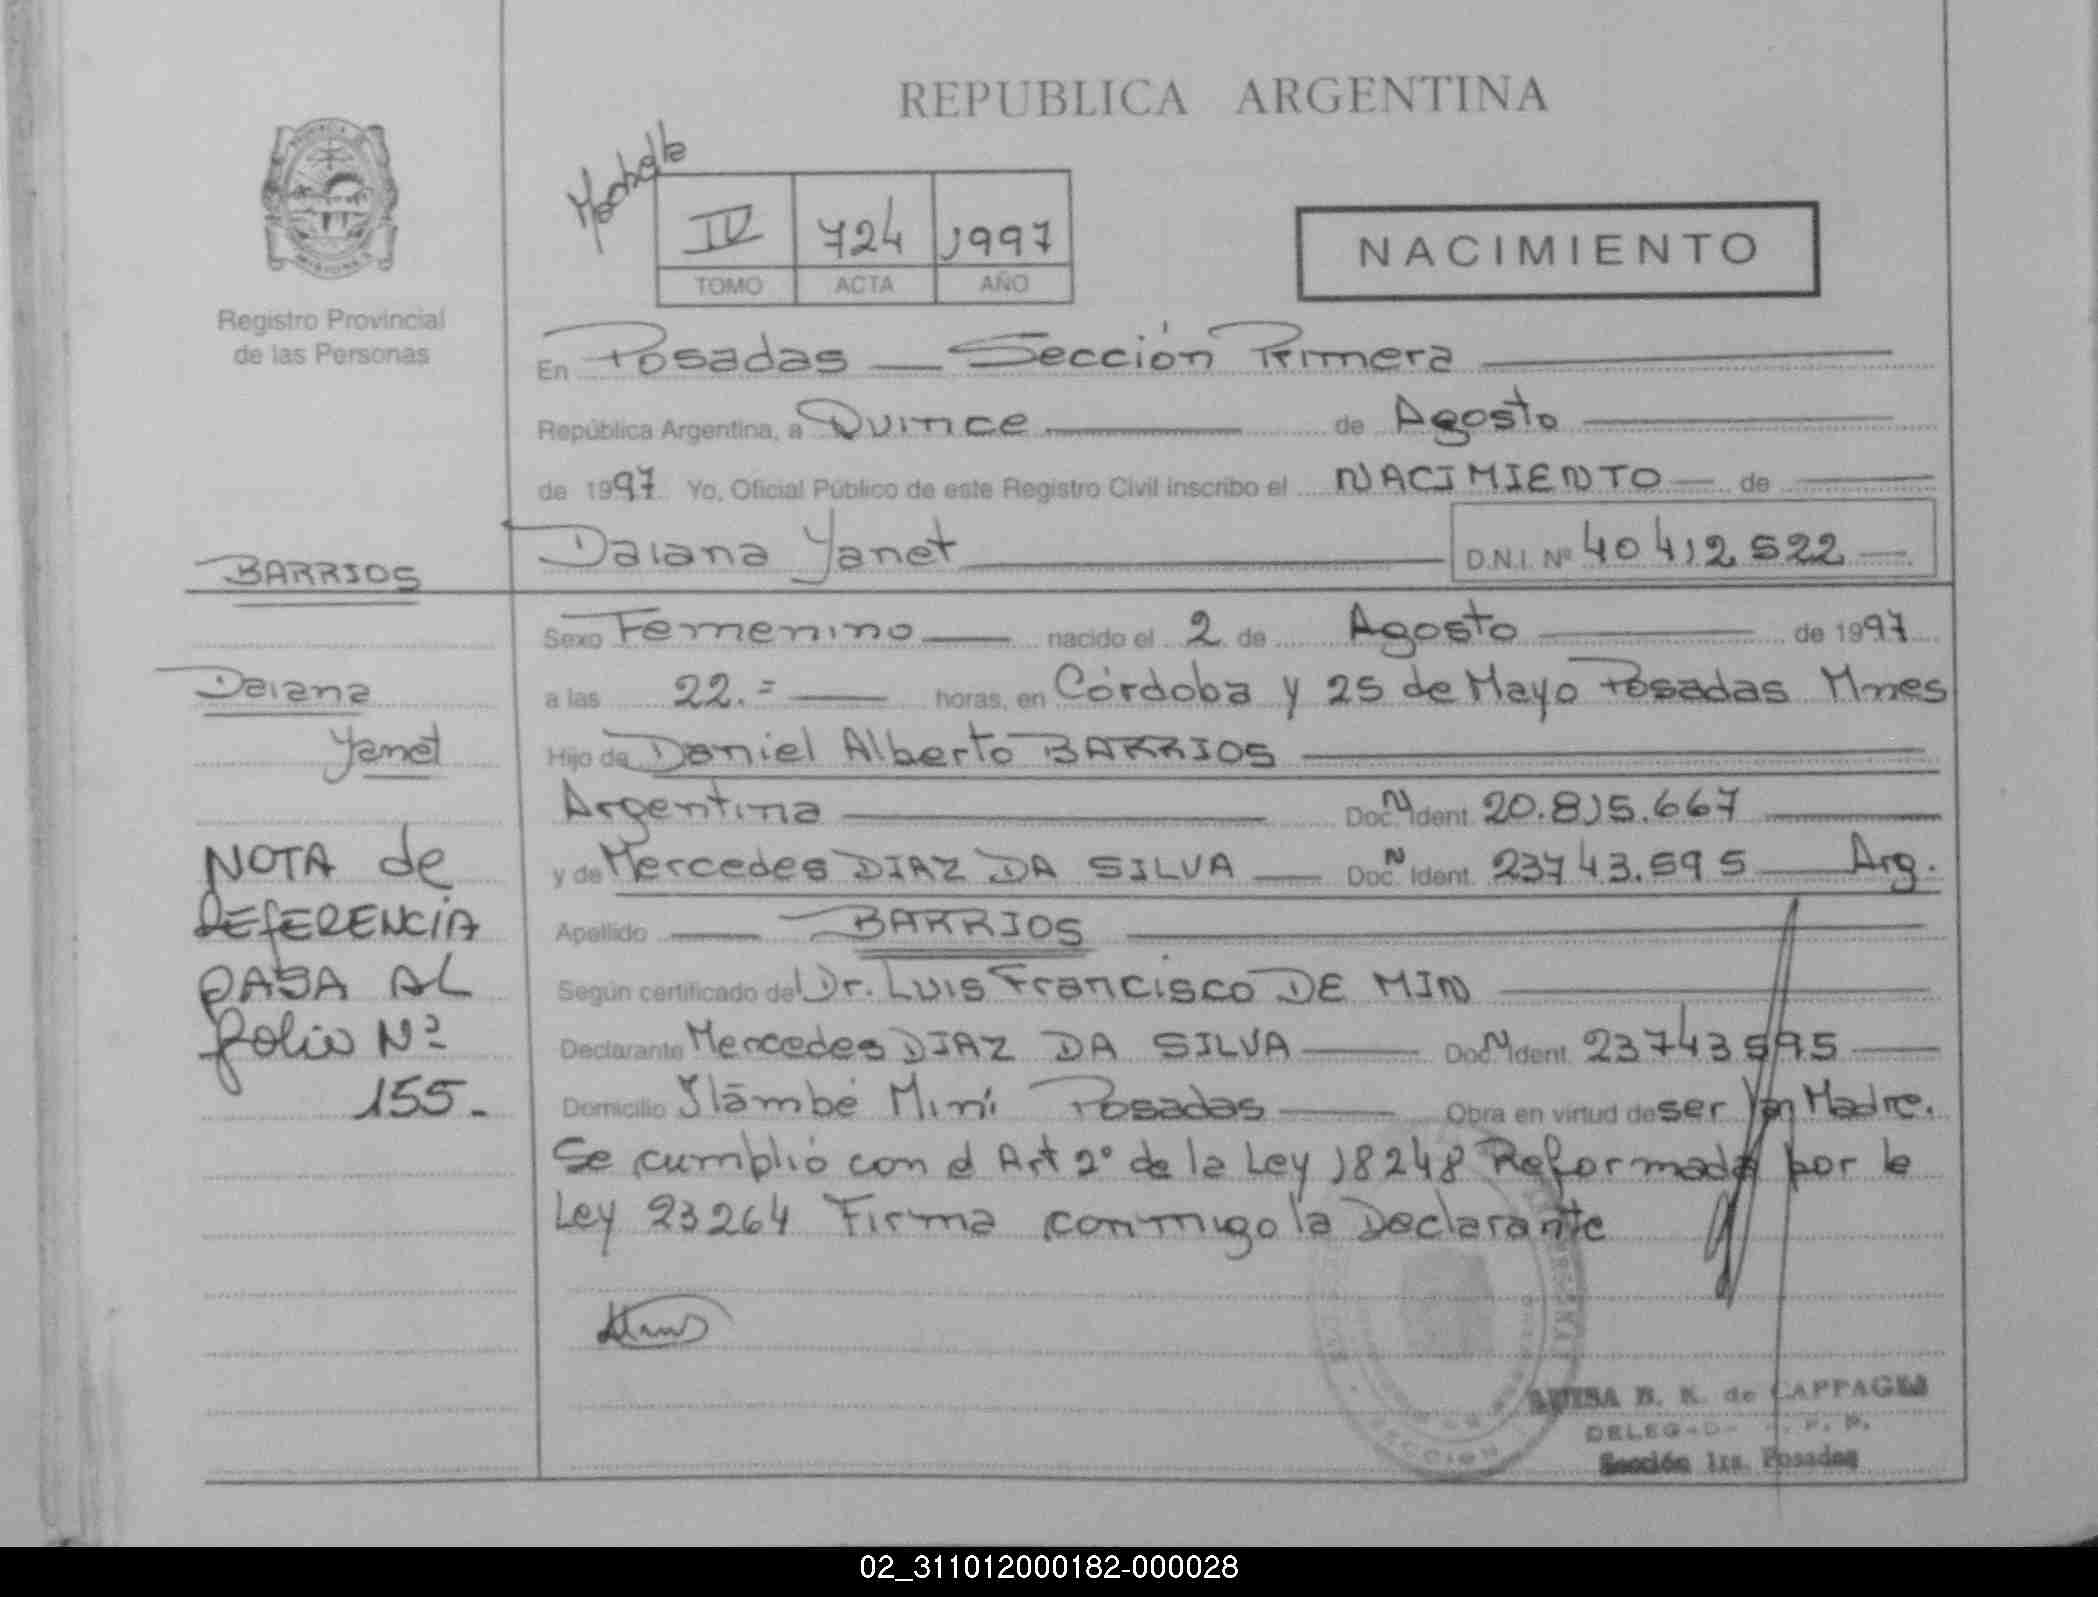 REPUBLICA ARGENTINA
PROVINCIA
MISIONES
Registro Provincial
de las Personas
IV 724 1997
TOMO ACTA AÑO
NACIMIENTO
En Posadas — Sección Primera
República Argentina, a Quince de Agosto
de 1997 Yo, Oficial Público de este Registro Civil inscribo el NACIMIENTO de
Daiana Yanet D.N.I. Nº 40412522
BARRIOS
Daiana
Yanet
NOTA de
REFERENCIA
PASA AL
folio Nº
155.-
Sexo Femenino nacido el 2 de Agosto de 1997
a las 22.= horas, en Córdoba y 25 de Mayo Posadas Mnes
Hijo de Daniel Alberto BARRIOS
Argentina Doc. N Ident. 20.815.667
y de Mercedes DIAZ DA SILVA Doc. N Ident. 23743.595 Arg.
Apellido BARRIOS
Según certificado del Dr. Luis Francisco DE MIN
Declarante Mercedes DIAZ DA SILVA Doc. N Ident. 23743595
Domicilio Miní Posadas Obra en virtud de ser Madre.
Se cumplió con el Art 2º de la Ley 18248 Reformada por la
Ley 23264 Firma conmigo la Declarante
SECCION
B. K. de CAPPAGLI
Sección 1ra. Posadas
02_311012000182-000028